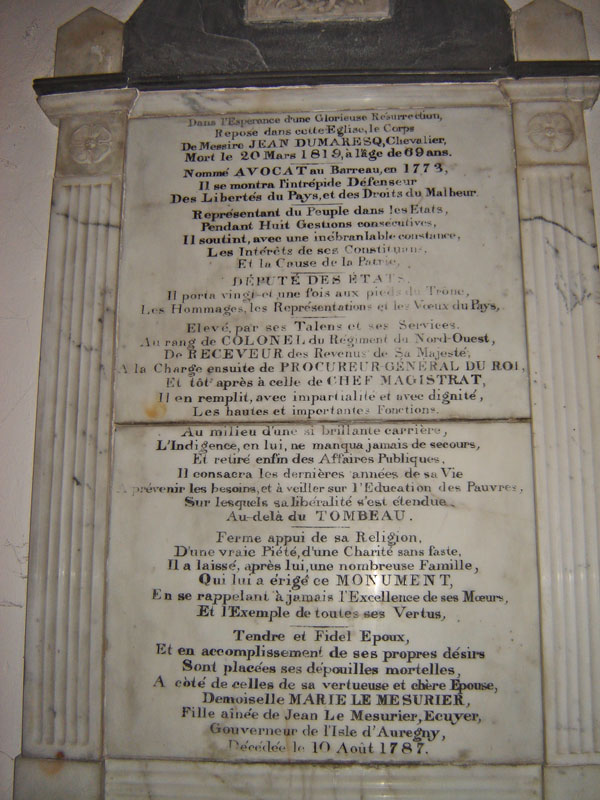 Dans l'Esperance d'une Glorieuse Resurrection,
Repose dans cette Eglise, le Corps
De Messire JEAN DUMARESQ, Chevalier,
Mort le 20 Mars 1819, à l'âge de 69 ans.
Nommé AVOCAT au Barreau, en 1773,
Il se montra l'intrépide Défenseur
Des Libertés du Pays, et des Droits du Malheur.
Représentant du Peuple dans les Etats,
Pendant Huit Gestions consécutives,
Il soutint, avec une inébranlable constance,
Les Intérêts de ses Constituans,
Et la Cause de la Patrie,
DÉPUTÉ DES ÉTATS,
Il porta vingt-et une fois aux pieds du Trône,
Les Hommages, les Représentations et les Vœux du Pays,
Elevé, par ses Talens et ses Services,
Au rang de COLONEL du Régiment du Nord-Ouest,
De RECEVEUR des Revenus de Sa Majesté,
A la Charge ensuite de PROCUREUR-GÉNÉRAL DU ROI,
Et tôt après à celle de CHEF MAGISTRAT,
Il en remplit, avec impartialité et avec dignité,
Les hautes et importantes Fonctions.
Au milieu d'une si brillante carrière,
L'Indigence, en lui, ne manqua jamais de secours,
Et retiré enfin des Affaires Publiques,
Il consacra les dernières années de sa Vie
A prévenir les besoins, et à veiller sur l'Education des Pauvres,
Sur lesquels sa libéralité s'est étendue
Au-delà du TOMBEAU.
Ferme appui de sa Religion,
D'une vraie Piété, d'une Charité sans faste,
Il a laissé, après lui, une nombreuse Famille,
Qui lui a érigé ce MONUMENT,
En se rappelant à jamais l'Excellence de ses Mœurs,
Et l'Exemple de toutes ses Vertus,
Tendre et Fidel Epoux,
Et en accomplissement de ses propres désirs
Sont placées ses dépouilles mortelles,
A côté de celles de sa vertueuse et chère Epouse,
Demoiselle MARIE LE MESURIER,
Fille aînée de Jean Le Mesurier, Ecuyer,
Gouverneur de l'Isle d'Auregny,
Décédée le 10 Août 1787.